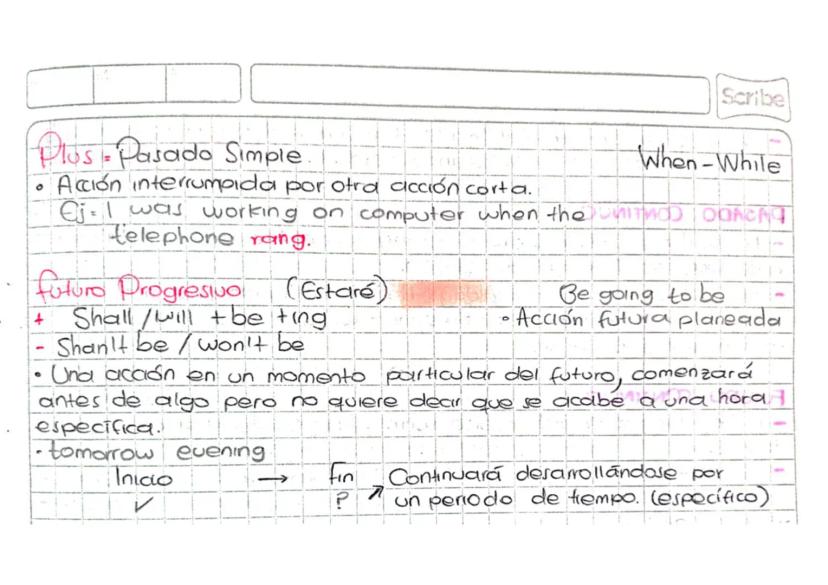 Scribe
Plus = Pasado Simple. When - While
• Acción interrumpida por otra acción corta.
Ej = I was working on computer when the
telephone rang.
futuro Progresivo (Estaré) Be going to be
+ Shall / will + be + ing • Acción futura planeada
- Shan't be / won't be
• Una acción en un momento particular del futuro, comenzará
antes de algo pero no quiere decir que se acabe a una hora
específica.
• tomorrow evening
Inicio → fin Continuará desarrollándose por
✓ ? ↗ un periodo de tiempo. (específico)